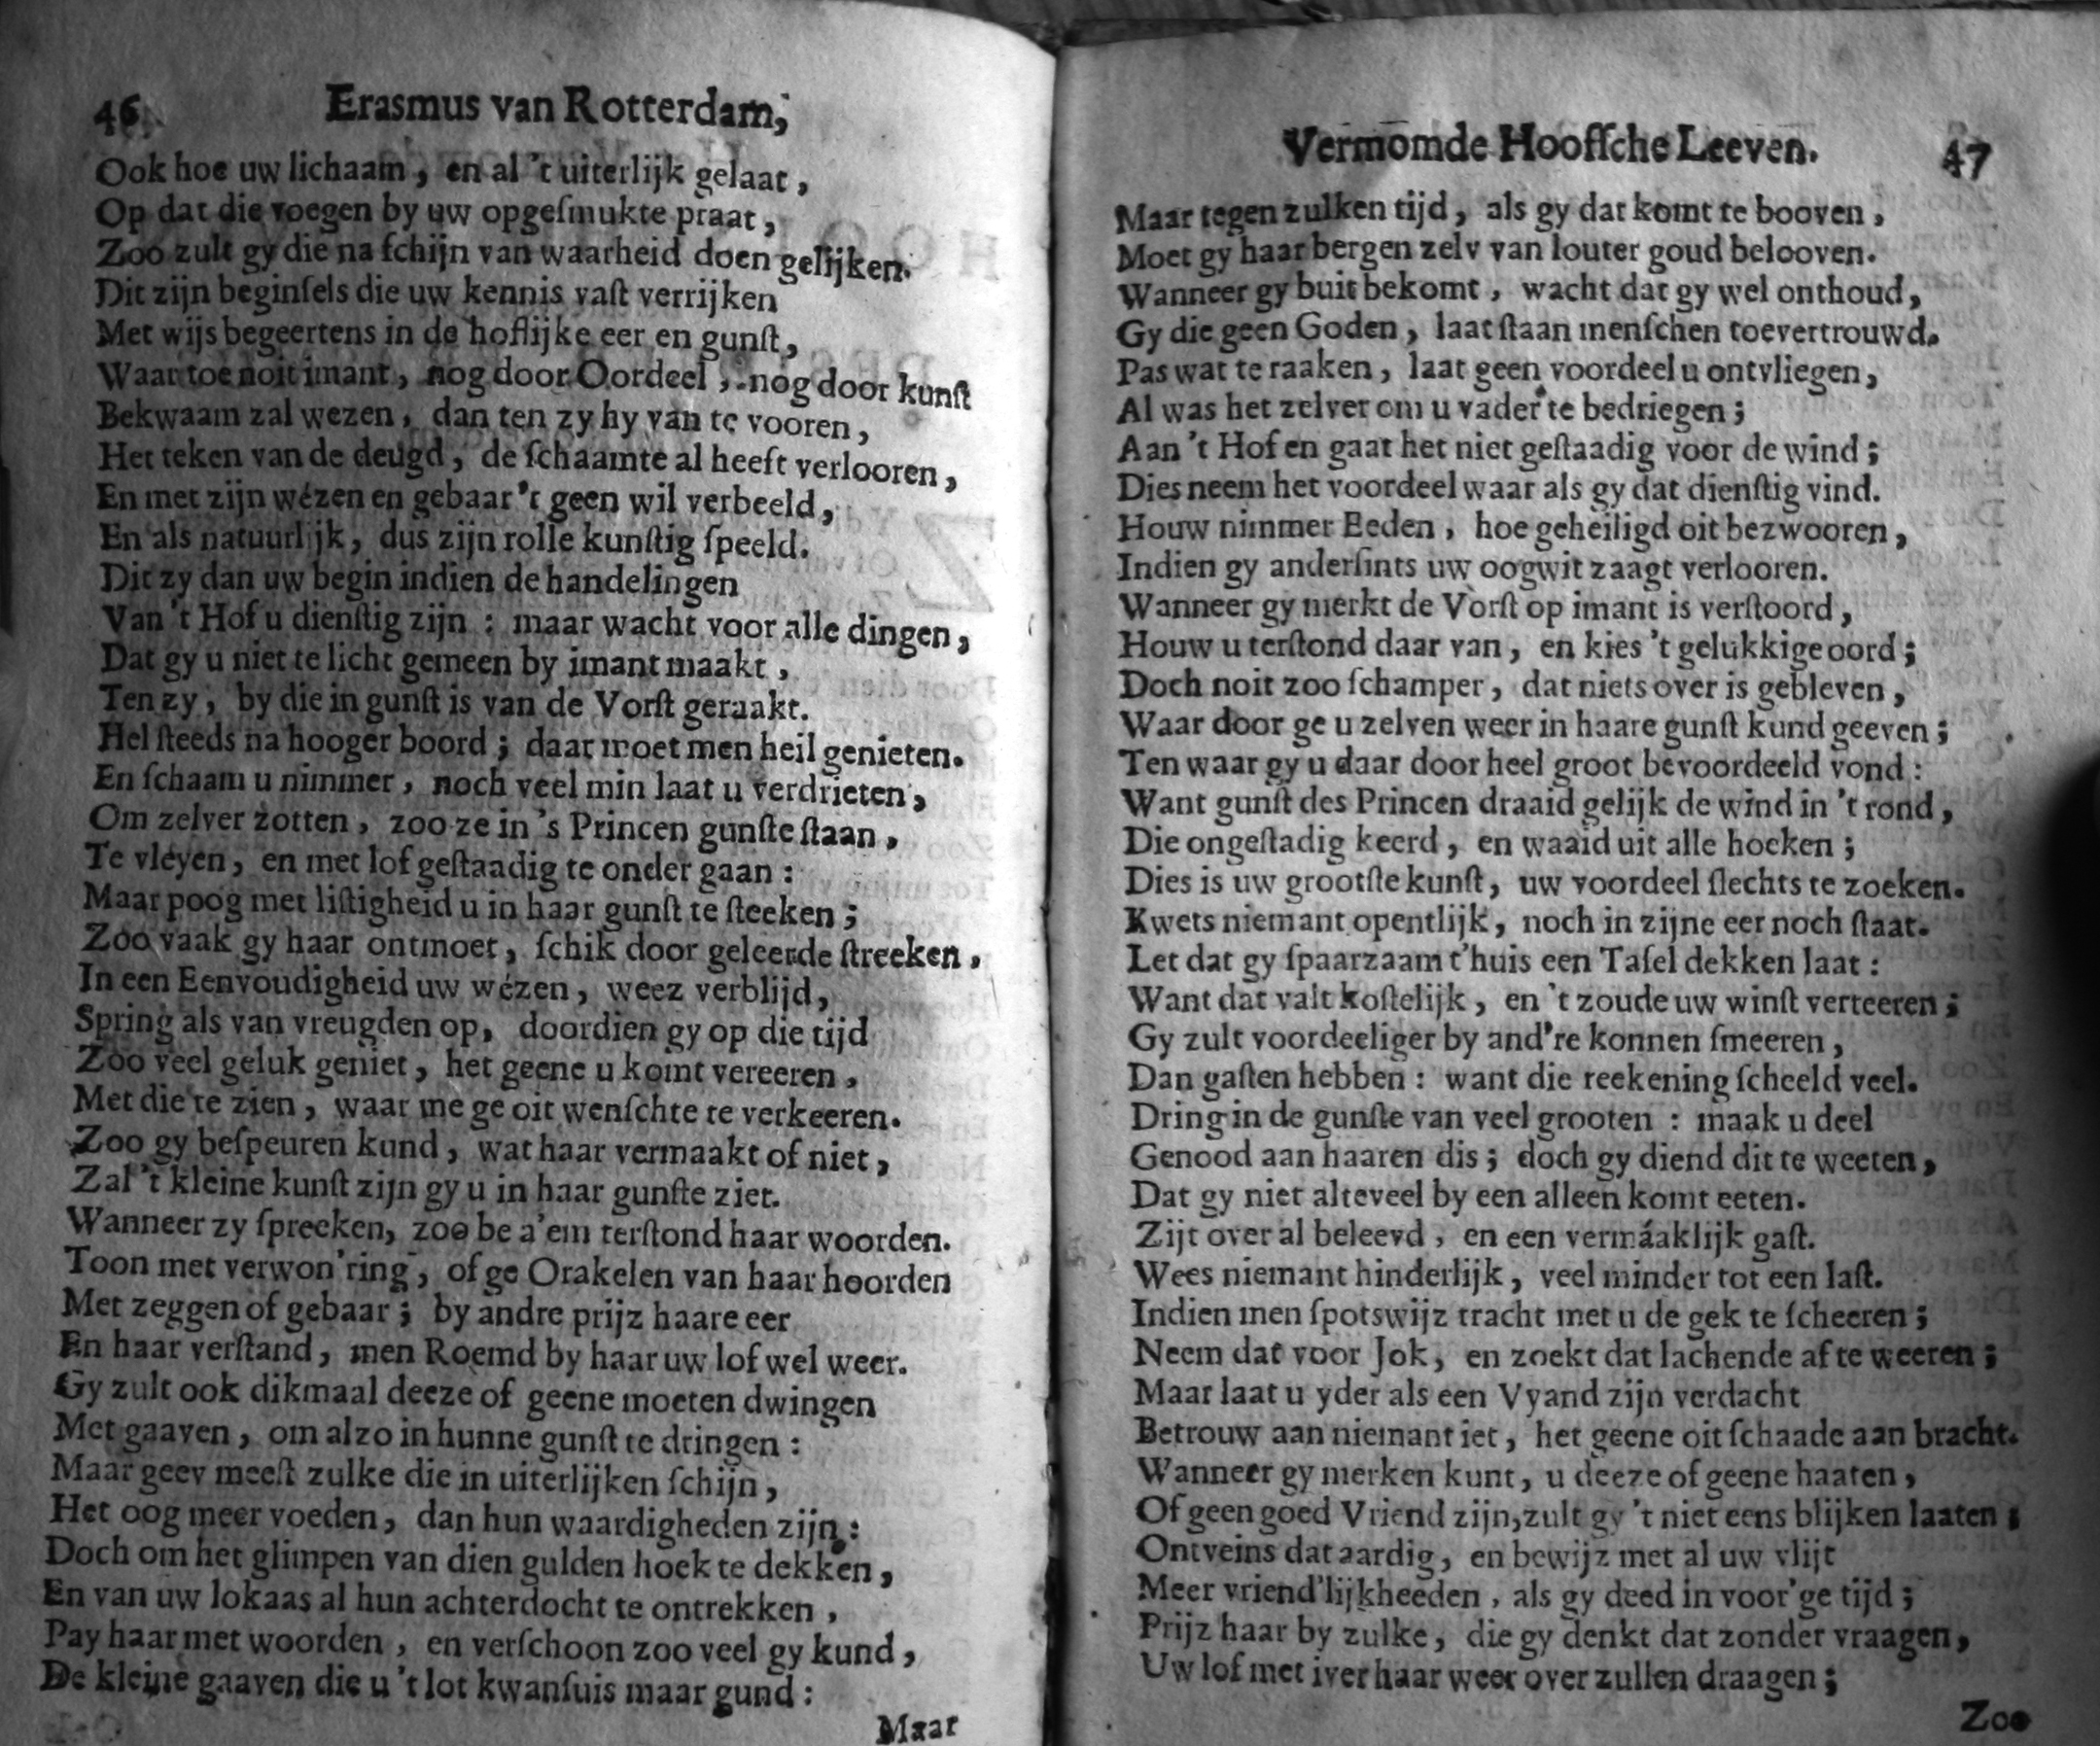 46 Erasmus van Rotterdam,
Ook hoe uw lichaam, en al 't uiterlijk gelaat,
Op dat die voegen by uw opgeſmukte praat,
Zoo zult gy die na ſchijn van waarheid doen gelijken.
Dit zijn beginſels die uw kennis vaſt verrijken
Met wijs begeertens in de hoflijke eer en gunſt,
Waar toe noit imant, nog door Oordeel, nog door kunſt
Bekwaam zal wezen, dan ten zy hy van te vooren,
Het teken van de deugd, de ſchaamte al heeft verlooren,
En met zijn wézen en gebaar 't geen wil verbeeld,
En als natuurlijk, dus zijn rolle kunſtig ſpeeld.
Dit zy dan uw begin indien de handelingen
Van 't Hof u dienſtig zijn : maar wacht voor alle dingen,
Dat gy u niet te licht gemeen by imant maakt,
Ten zy, by die in gunſt is van de Vorſt geraakt.
Hel ſteeds na hooger boord; daar moet men heil genieten.
En ſchaam u nimmer, noch veel min laat u verdrieten,
Om zelver zotten, zoo ze in 's Princen gunſte ſtaan,
Te vléyen, en met lof geſtaadig te onder gaan :
Maar poog met liſtigheid u in haar gunſt te ſteeken;
Zoo vaak gy haar ontmoet, ſchik door geleerde ſtreeken,
In een Eenvoudigheid uw wézen, weez verblijd,
Spring als van vreugden op, doordien gy op die tijd
Zoo veel geluk geniet, het geene u komt vereeren,
Met die te zien, waar me ge oit wenſchte te verkeeren.
Zoo gy beſpeuren kund, wat haar vermaakt of niet,
Zal 't kleine kunſt zijn gy u in haar gunſte ziet.
Wanneer zy ſpreeken, zoo be a'em terſtond haar woorden.
Toon met verwon'ring, of ge Orakelen van haar hoorden
Met zeggen of gebaar; by andre prijz haare eer
En haar verſtand, men Roemd by haar uw lof wel weer.
Gy zult ook dikmaal deeze of geene moeten dwingen
Met gaaven, om alzo in hunne gunſt te dringen :
Maar geev meeſt zulke die in uiterlijken ſchijn,
Het oog meer voeden, dan hun waardigheden zijn:
Doch om het glimpen van dien gulden hoek te dekken,
En van uw lokaas al hun achterdocht te ontrekken,
Pay haar met woorden, en verſchoon zoo veel gy kund,
De kleine gaaven die u 't lot kwanſuis maar gund :
Maar
Vermomde Hooffche Leeven. 47
Maar tegen zulken tijd, als gy dat komt te booven,
Moet gy haar bergen zelv van louter goud belooven.
Wanneer gy buit bekomt, wacht dat gy wel onthoud,
Gy die geen Goden, laat ſtaan menſchen toevertrouwd.
Pas wat te raaken, laat geen voordeel u ontvliegen,
Al was het zelver om u vader te bedriegen;
Aan 't Hof en gaat het niet geſtaadig voor de wind;
Dies neem het voordeel waar als gy dat dienſtig vind.
Houw nimmer Eeden, hoe geheiligd oit bezwooren,
Indien gy anderſints uw oogwit zaagt verlooren.
Wanneer gy merkt de Vorſt op imant is verſtoord,
Houw u terſtond daar van, en kies 't gelukkige oord;
Doch noit zoo ſchamper, dat niets over is gebleven,
Waar door ge u zelven weer in haare gunſt kund geeven;
Ten waar gy u daar door heel groot bevoordeeld vond :
Want gunſt des Princen draaid gelijk de wind in 't rond,
Die ongeſtadig keerd, en waaid uit alle hoeken;
Dies is uw grootſte kunſt, uw voordeel ſlechts te zoeken.
Kwets niemant opentlijk, noch in zijne eer noch ſtaat.
Let dat gy ſpaarzaam t'huis een Tafel dekken laat :
Want dat valt koſtelijk, en 't zoude uw winſt verteeren;
Gy zult voordeeliger by and're konnen ſmeeren,
Dan gaſten hebben : want die reekening ſcheeld veel.
Dring in de gunſte van veel grooten : maak u deel
Genood aan haaren dis; doch gy diend dit te weeten,
Dat gy niet alteveel by een alleen komt eeten.
Zijt over al beleevd, en een vermáaklijk gaſt.
Wees niemant hinderlijk, veel minder tot een laſt.
Indien men ſpotswijz tracht met u de gek te ſcheeren;
Neem dat voor Jok, en zoekt dat lachende af te weeren;
Maar laat u yder als een Vyand zijn verdacht
Betrouw aan niemant iet, het geene oit ſchaade aan bracht.
Wanneer gy merken kunt, u deeze of geene haaten,
Of geen goed Vriend zijn, zult gy 't niet eens blijken laaten;
Ontveins dat aardig, en bewijz met al uw vlijt
Meer vriend'lijkheeden, als gy deed in voor'ge tijd;
Prijz haar by zulke, die gy denkt dat zonder vraagen,
Uw lof met iver haar weer over zullen draagen;
Zoo